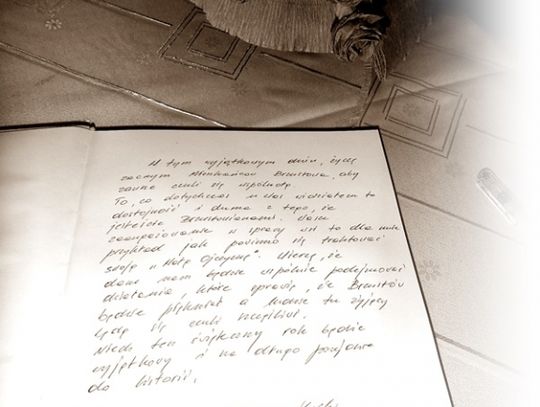 W tym wyjątkowym dniu, życzę
zacnym Mieszkańcom Brwistowa, aby
zawsze czuli się wspólnotą.
To, co dotychczas u Was widziałem to
dostojność i duma z tego, że
jesteście
zaangażowanie w sprawy wsi to dla mnie
przykład jak powinno się traktować
swoją "Małą Ojczyznę". Wierzę, że
dane nam będzie wspólnie podejmować
działania, które sprawią, że
będzie piękniał a ludzie tu żyjący
będą się czuli szczęśliwi.
Niech ten świąteczny rok będzie
wyjątkowy i na długo przejdzie
do historii.